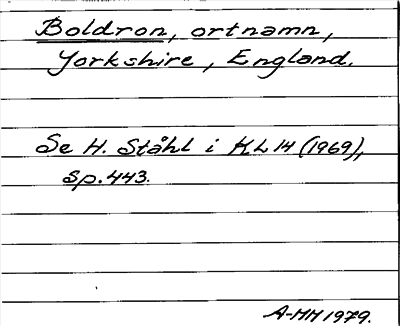 Boldron, ortnamn,
Yorkshire, England.
Se H. Ståhl i KL 14 (1969),
sp. 443.
A-HH 1979.